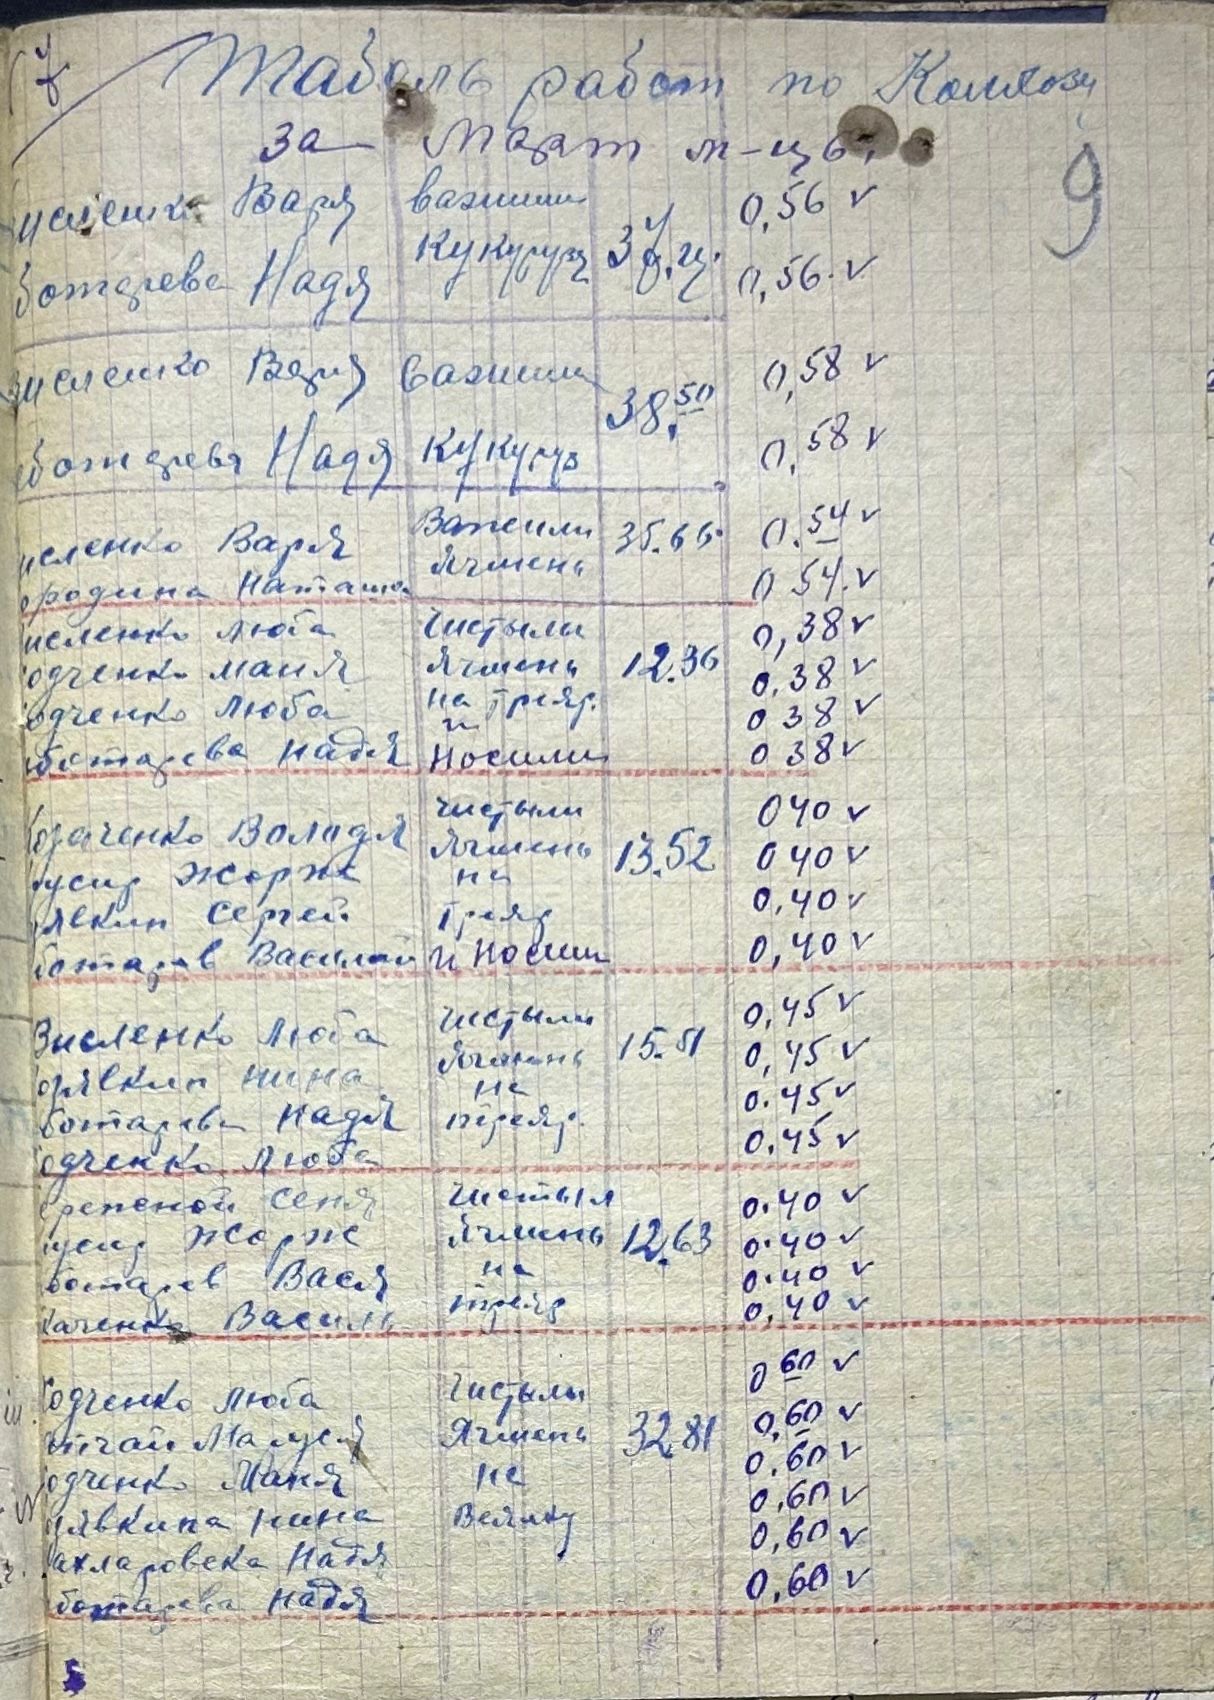 Табель работ по Колхозу
за Март м-ць.
9
исленко Варя важили 0,56 v
Ботарева Надя Кукуруз 37,ц. 0,56. v
исленко Варя Важили 0,58 v
38.50
Ботарева Надя Кукуруз 0,58 v
исленко Варя Важили 35.66 0.54 v
ородина Наташа Ячмень 0 54. v
исленко Люба Чистыли 0,38 v
одченко Маня Ячмень 12.36 0.38 v
одченко Люба на Трєяр. 0 38 v
и
ботарева Надя Носили 0 38 v
Чистыли 0 40 v
Володя Ячмень 13.52 0 40 v
Жорж на 0.40 v
Сергей Трєяр
ботарев Василий и Носили 0,40 v
Зисленко Люба Чистыли 15.51 0,45 v
Нина Ячмень 0,45 v
на
ботарева Надя трєяр. 0.45 v
одченко Люба 0.45 v
Сеня Чистыл 0.40 v
Жорж Ячмень 12.63 0.40 v
ботарев Вася на 0.40 v
каченко Василь трєяр 0,40 v
одченко Люба Чистыли 0 60 v
Маруся Ячмень 32.81 0,60 v
одченко Маня на 0.60 v
Нина Веялку 0,60 v
Надя 0,60 v
ботарева Надя 0,60 v